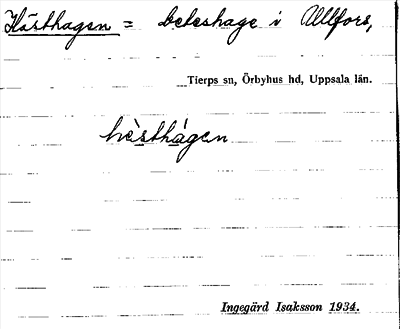 Hästhagen = beteshage i Allfors,
Tierps sn, Örbyhus hd, Uppsala län.
hὲsthágen
Ingegärd Isaksson 1934.